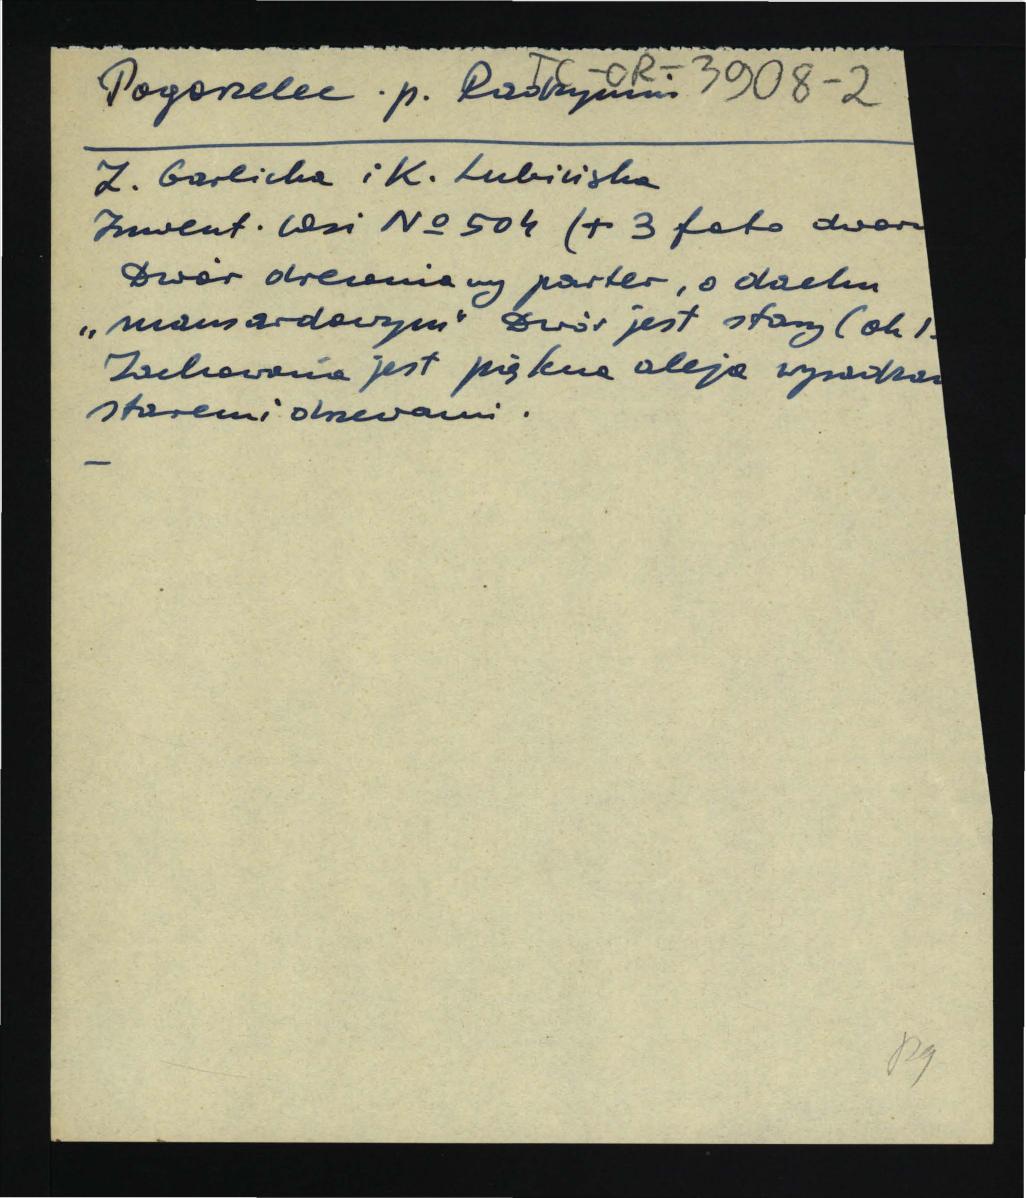 Pogorzelec . p. Radzymin TC-OR-3908-2
Z. Garlicka i K. Lubińska
Inwent. Wsi Nº 504 (+ 3 foto dwor
Dwór drewniany parter, o dachu
„mansardowym" Dwór jest stary (ok 1.
Zachowana jest piękna aleja wysadzan
staremi drzewami.
—